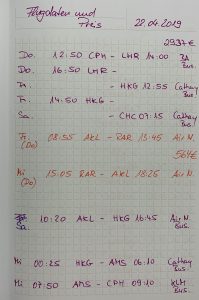 Flugdaten und
Preis 22.04.2019
2937 €
Do. 12:50 CPH - LHR 14:00 BA
Bus.
Do. 16:50 LHR -
Fr. - HKG 12:55 Cathay
Bus.
Fr. 14:50 HKG -
Sa. - CHC 07:15 Cathay
Bus.
Fr. 08:55 AKL - RAR 13:45 Air N.
(Do)
564€
Mi 15:05 RAR - AKL 18:25 Air N.
(Do)
Sa. 10:20 AKL - HKG 16:45 Air N
Bus.
Mi 00:25 HKG - AMS 06:10 Cathay
Bus.
Mi 07:50 AMS - CPH 09:10 KLM
Bus.